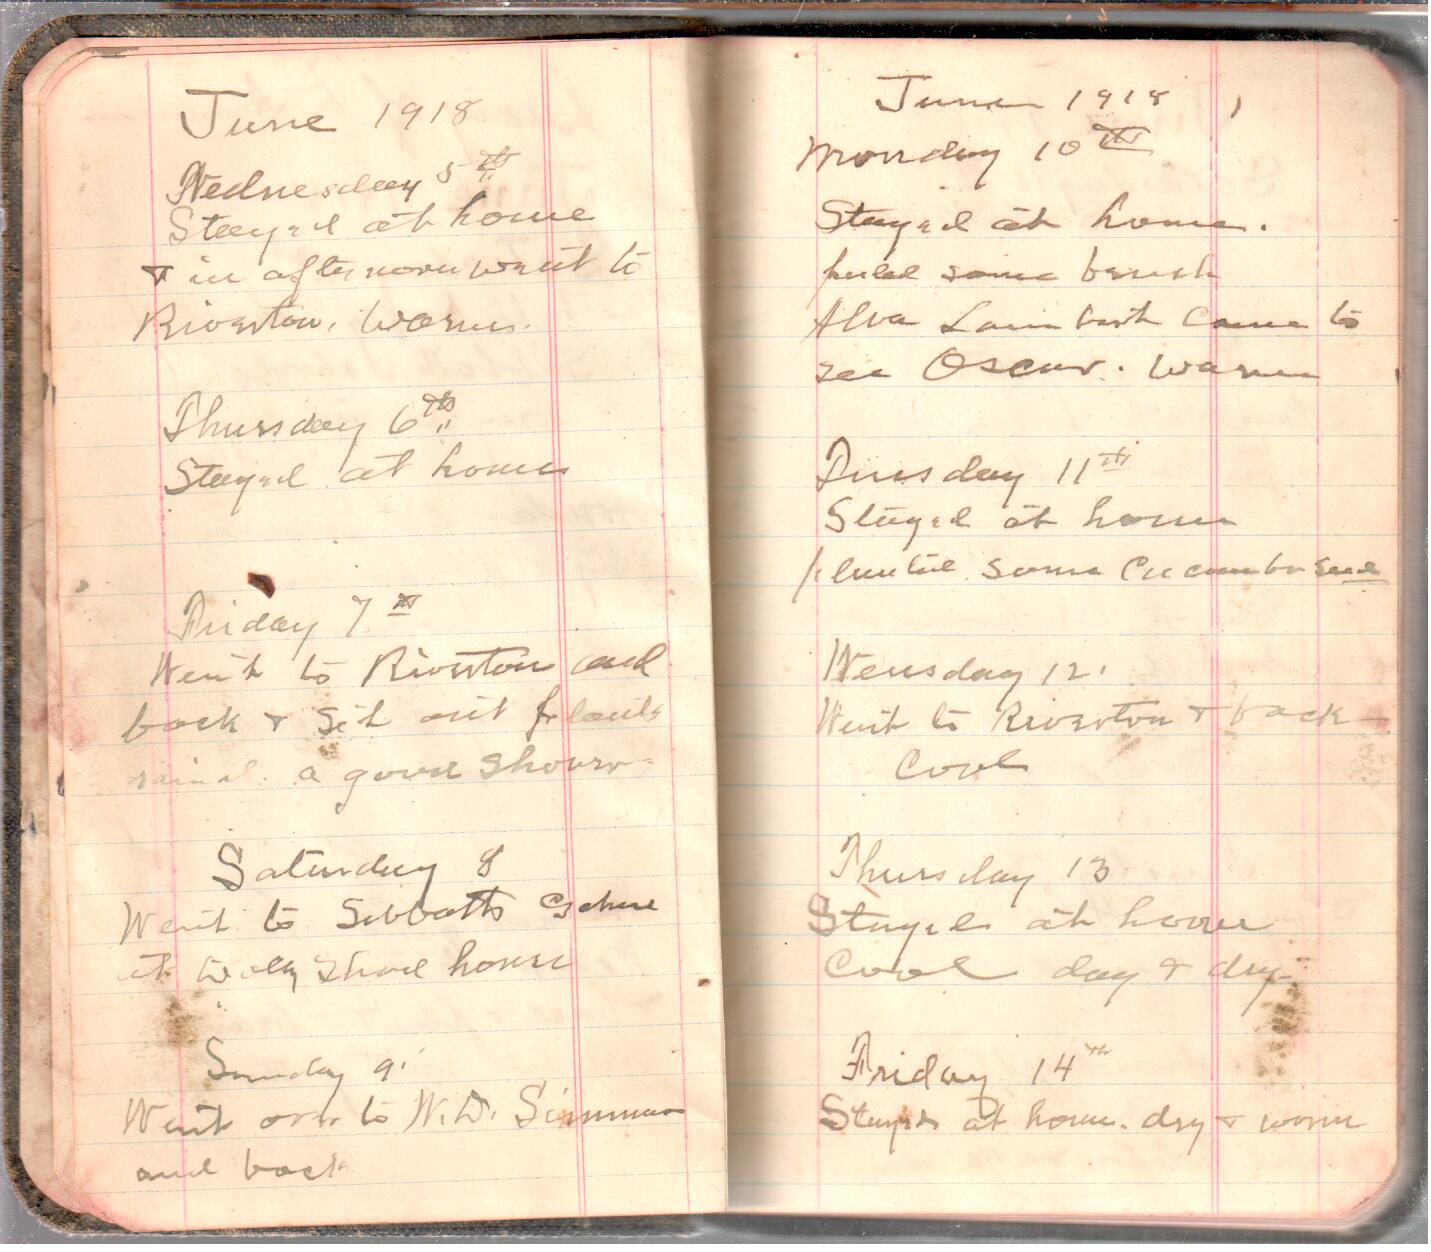 June 1918
Wednesday 5th
Stayed at home
& in afternoon went to
Riverton. Warm.
Thursday 6th
Stayed at home
Friday 7th
Went to Riverton and
back & Set out plants
rained. a good Shower
Saturday 8
Went to Sabbath
at house
Sunday 9.
Went over to W.D. Simmons
and back
June 1918
Monday 10th
Stayed at home.
some brush
Alva Lambert Came to
see Oscar. Warm
Tuesday 11th
Stayed at home
planted some Cucumber seed
Wensday 12.
Went to Riverton & back
Cool
Thursday 13
Stayed at home
Cool day & dry
Friday 14th
Stayed at home. dry & warm